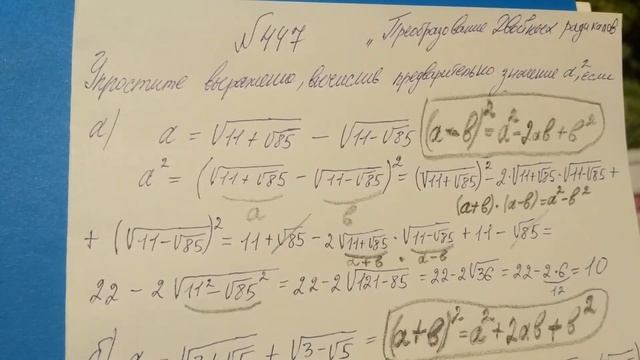 №447 „Преобразование двойных радикалов
Упростите выражению, вычислив предварительно значение a², если
а) a = √(11+√85) − √(11−√85) (a−в)² = a² − 2ab + в²
a² = (√(11+√85) − √(11−√85))² = (√(11+√85))² − 2·√(11+√85)·√(11−√85) +
a в (a+в)·(a−в)=a²−в²
+ (√(11−√85))² = 11+√85 − 2√(11+√85) · √(11−√85) + 11 − √85 =
a+в · a−в
22 − 2√(11²−√85²) = 22−2√(121−85) = 22−2√36 = 22−2·6 = 10
12
б) a = √(3+√5) + √(3−√5) = (a+в)² = a²+2ab+в²